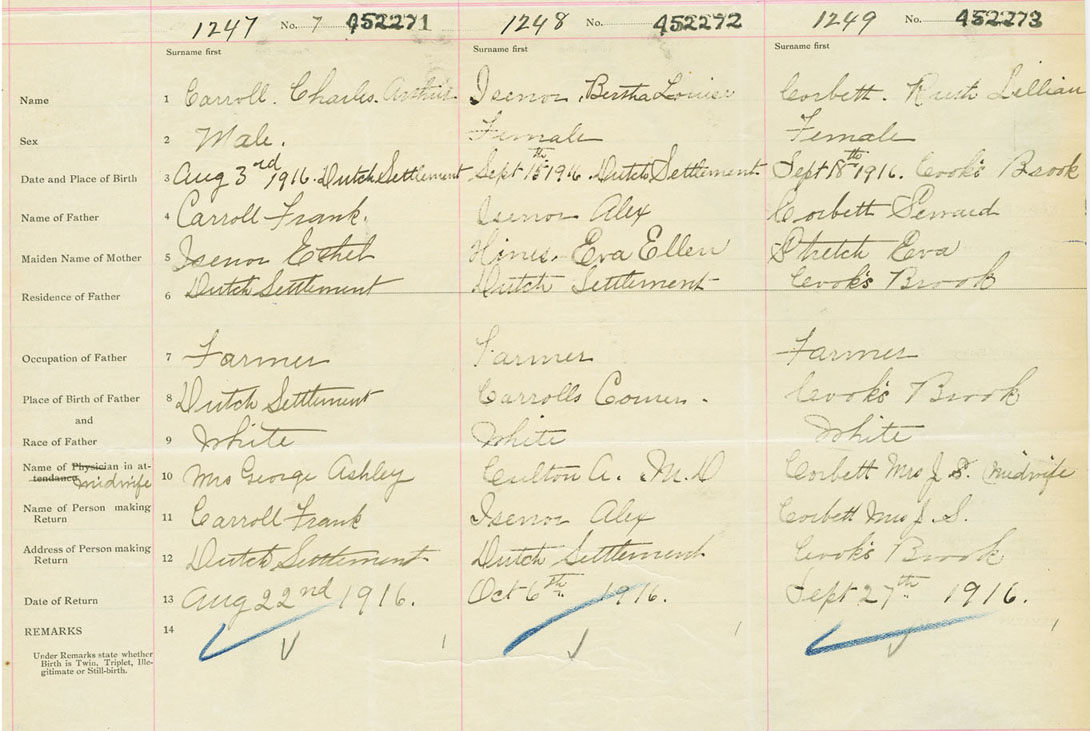 1247 No. 7 452271 1248 No. 452272 1249 No. 452273
Surname first Surname first Surname first
Name 1 Carroll. Charles. Arthur Isenor. Bertha Louise Corbett. Ruth Lillian
Sex 2 Male. Female Female
Date and Place of Birth 3 Aug 3rd 1916. Dutch Settlement Sept 1916. Dutch Settlement Sept 18th 1916. Cook's Brook
Name of Father 4 Carroll Frank. Isenor Alex Corbett Seward
Maiden Name of Mother 5 Isenor Ethel Hines. Eva Ellen Stretch Eva
Residence of Father 6 Dutch Settlement Dutch Settlement Cook's Brook
Occupation of Father 7 Farmer Farmer Farmer
Place of Birth of Father 8 Dutch Settlement Carrolls Corner. Cook's Brook
and
Race of Father 9 White White White
Name of Physician in at-
tendance midwife 10 Mrs George Ashley Culton A. M.D Corbett Mrs J. S. Midwife
Name of Person making
Return 11 Carroll Frank Isenor Alex Corbett Mrs J. S.
Address of Person making
Return 12 Dutch Settlement Dutch Settlement Cook's Brook
Date of Return 13 Aug 22nd 1916. Oct 6th 1916. Sept 27th 1916.
REMARKS 14
Under Remarks state whether
Birth is Twin, Triplet, Ille-
gitimate or Still-birth.